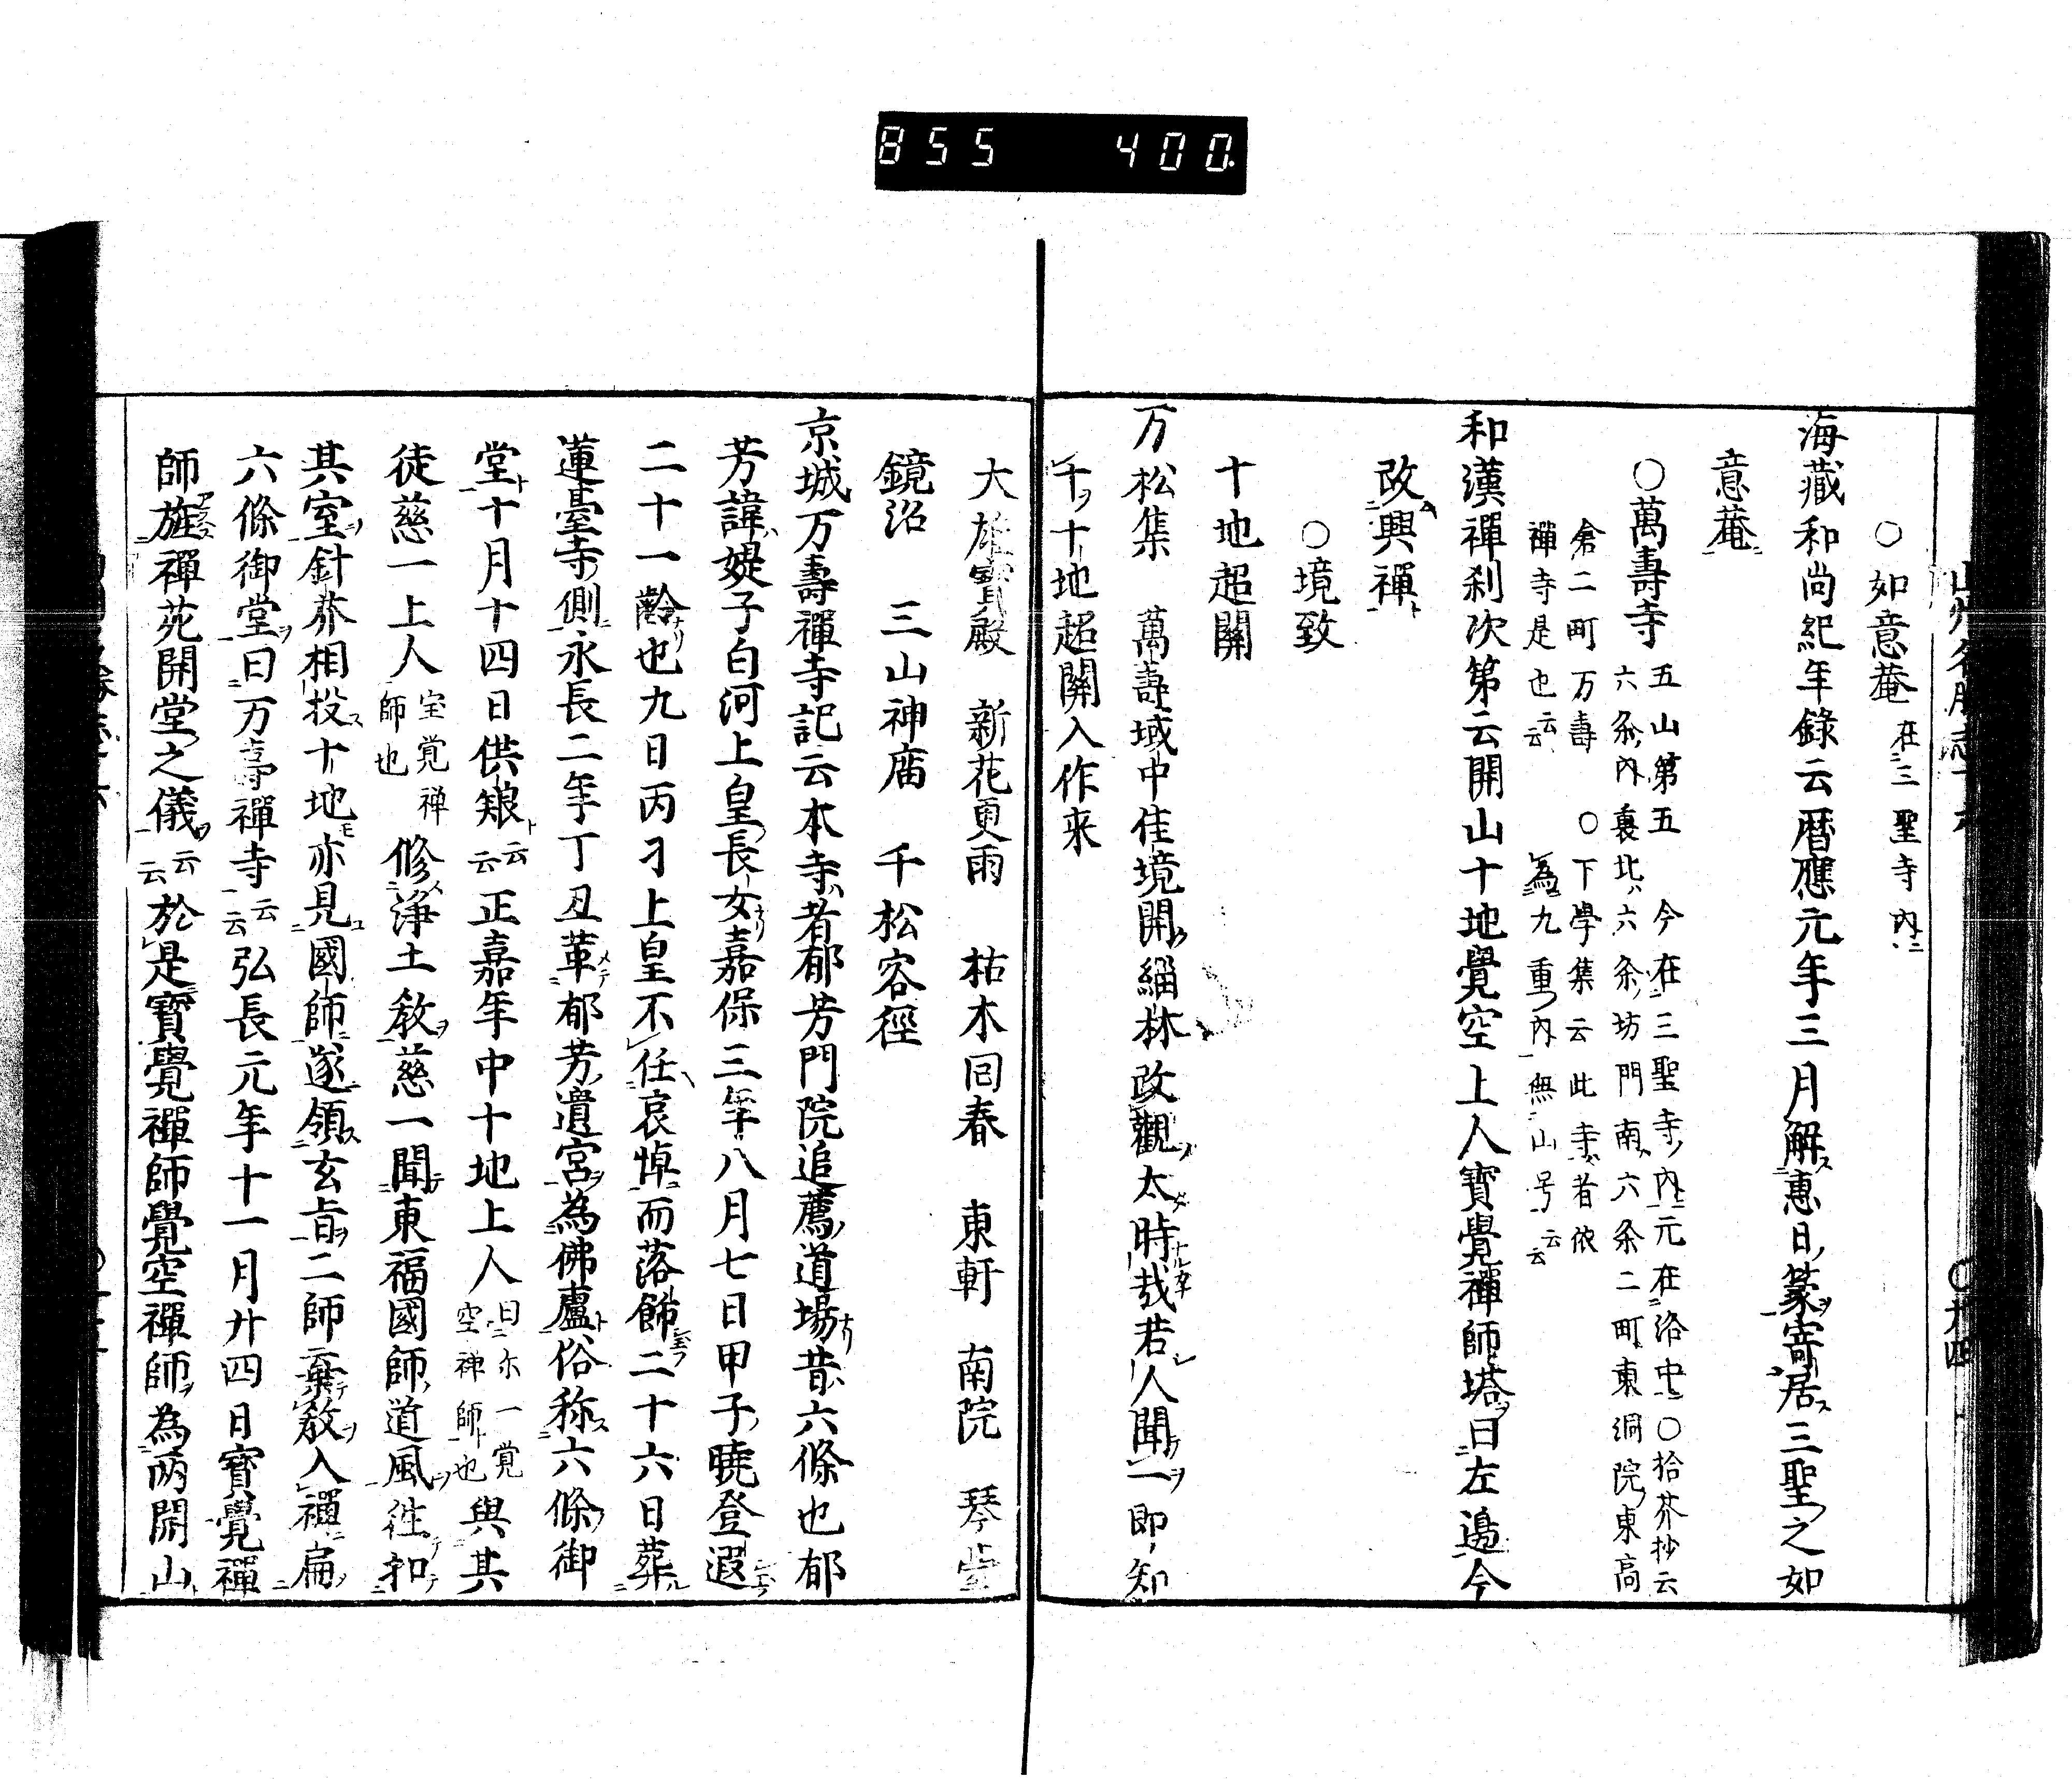 855 400.
○如意菴 在三聖寺内
海藏和尚紀年錄云暦應元年三月解惠日篆寄居三聖之如
意菴
○萬壽寺 五山第五 今在三聖寺内元在洛中○拾芥抄云
六条内裏北六条坊門南六条二町東洞院東高
倉二町万壽 ○下學集云此寺者依
禅寺是也云云 為九重内無山号云云
和漢禪刹次第云開山十地覺空上人寳覺禪師塔曰左邉今
改興禪
○境致
十地超關
万松集 萬壽域中佳境開緇林改觀太時哉若人聞一即知
千十地超關入作来
大雄寳殿 新花更雨 枯木囘春 東軒 南院 琴臺
鏡沼 三山神庙 千松客徑
京城万壽禪寺記云本寺者郁芳門院追薦道場昔六條也郁
芳諱媞子白河上皇長女嘉保三年八月七日甲子曉登遐
二十一齡也九日丙刁上皇不任哀悼而落餙二十六日葬
蓮臺寺側永長二年丁丑革郁芳遺宮為佛廬俗称六條御
堂十月十四日供粮云云正嘉年中十地上人曰尓一覚空禅師也與其
徒慈一上人宝覚禅師也修浄土教慈一聞東福國師道風徃扣
其室針芥相投十地亦見國師遂領玄旨二師棄教入禪扁
六條御堂曰万壽禪寺云云弘長元年十一月廾四日寳覺禪
師旌禪苑開堂之儀云云於是寳覺禪師覺空禪師為両開山